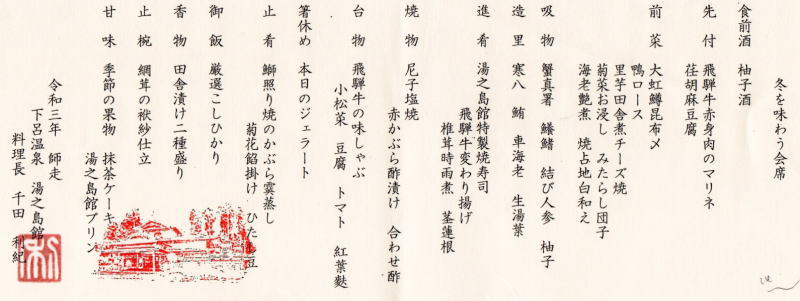 冬を味わう会席
食前酒 柚子酒
先付 飛騨牛赤身肉のマリネ
荏胡麻豆腐
前菜 大虹鱒昆布〆
鴨ロース
里芋田舎煮チーズ焼
菊菜お浸し みたらし団子
海老艶煮 焼占地白和え
吸物 蟹真署 鱶鰭 結び人参 柚子
造里 寒八 鮪 車海老 生湯葉
進肴 湯之島館特製焼寿司
飛騨牛変わり揚げ
椎茸時雨煮 茎蓮根
焼物 尼子塩焼
赤かぶら酢漬け 合わせ酢
台物 飛騨牛の味しゃぶ
小松菜 豆腐 トマト 紅葉麩
箸休め 本日のジェラート
止肴 鰤照り焼のかぶら雲蒸し
菊花餡掛け ひたし豆
御飯 厳選こしひかり
香物 田舎漬け二種盛り
止椀 網茸の袱紗仕立
甘味 季節の果物 抹茶ケーキ
湯之島館プリン
令和三年 師走
下呂温泉 湯之島館
料理長 千田 利紀